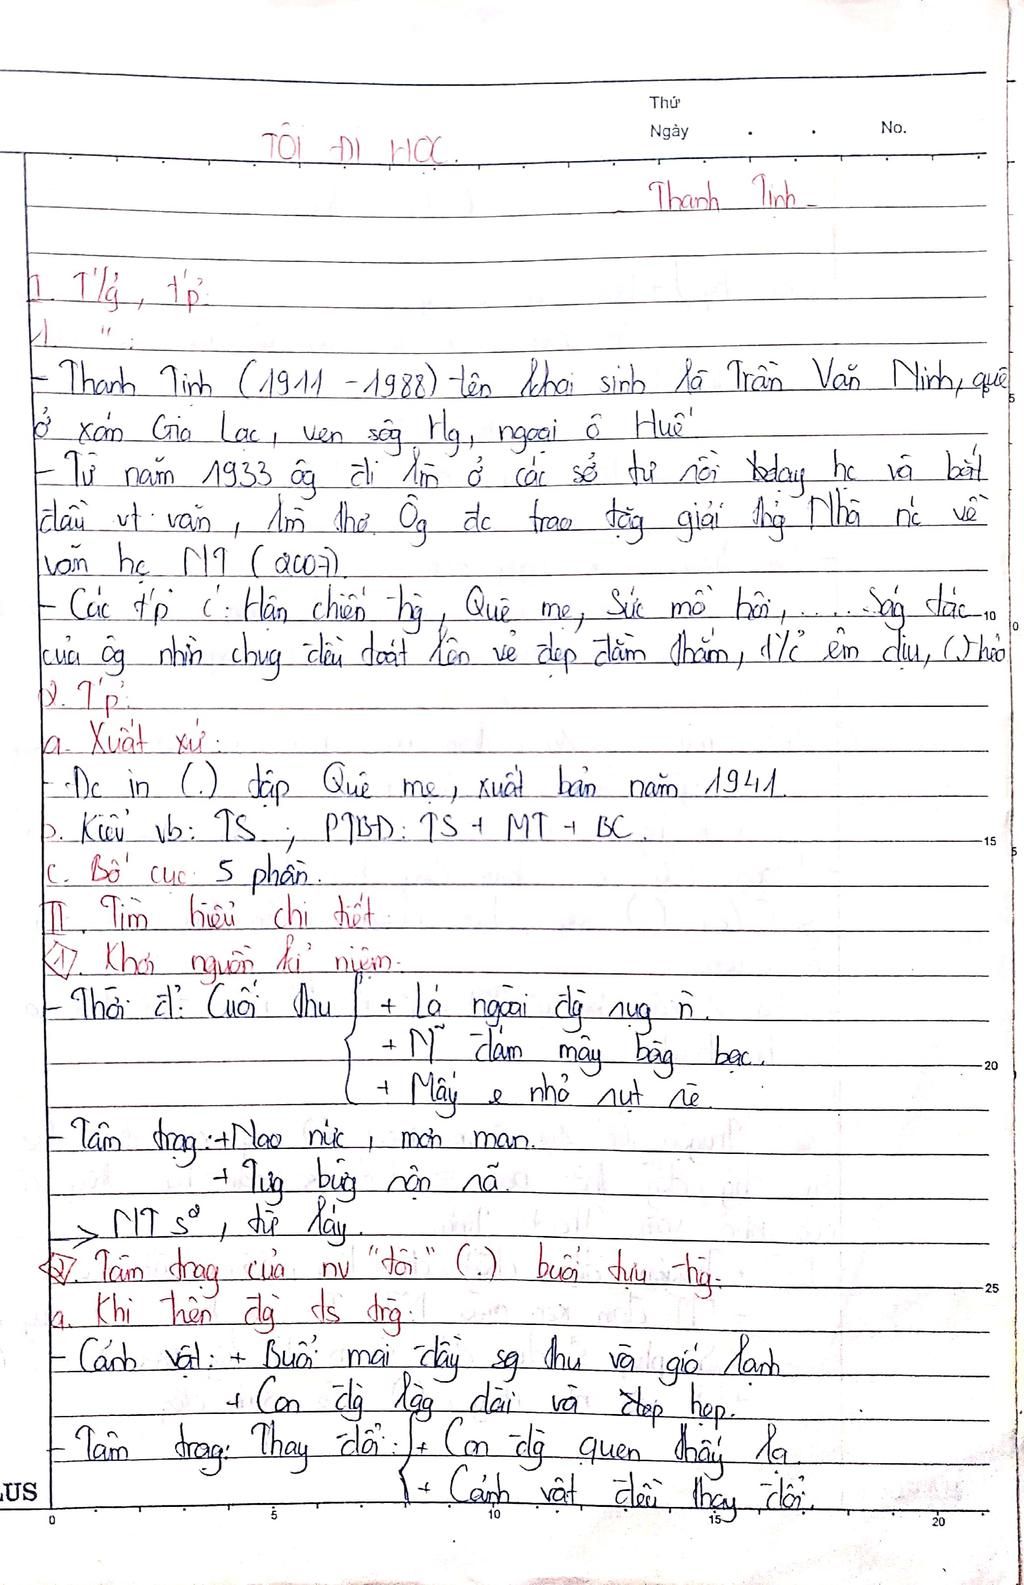 Thứ
Ngày . . No.
TÔI ĐI HỌC.
Thanh Tịnh
I. T/g, t/p:
1. " :
- Thanh Tịnh (1911 - 1988) tên khai sinh là Trần Văn Ninh, quê
ở xóm Gia Lạc, ven sôg Hg, ngoại ô Huế
- Từ năm 1933 ôg đi làm ở các sở tư rồi dạy hc và bắt
đầu vt văn, làm thơ. Ôg đc trao tặg giải thg Nhà nc về
văn hc NT (2007)
- Các t/p c': Hận chiến trg, Quê mẹ, Sức mồ hôi, ..... Ság tác
của ôg nhìn chug đều toát lên vẻ đẹp đằm thắm, t/c êm dịu, (.) trẻo
2. T/p:
a. Xuất xứ:
- Đc in (.) tập Quê mẹ, xuất bản năm 1941.
b. Kiểu vb: TS ; PTBĐ: TS + MT + BC.
c. Bố cục: 5 phần.
II. Tìm hiểu chi tiết
1. Khơi nguồn kỉ niệm.
- Thời đ': Cuối thu + Lá ngoài đg rụg n̄.
+ N̄ đám mây bàg bạc.
+ Mấy e nhỏ rụt rè
- Tâm trạg: + Nao nức, mơn man.
+ Tưg bừg rộn rã.
-> NT s², từ láy.
2. Tâm trạg của nv "tôi" (.) buổi tựu trg.
a. Khi trên đg ts trg.
- Cảnh vật: + Buổi mai đầy sg thu và gió lạnh
+ Con đg làg dài và hẹp.
- Tâm trạg: Thay đổi: + Con đg quen thấy lạ
+ Cảnh vật đều thay đổi.
LUS
0 5 10 15 20
5
10
15
20
25